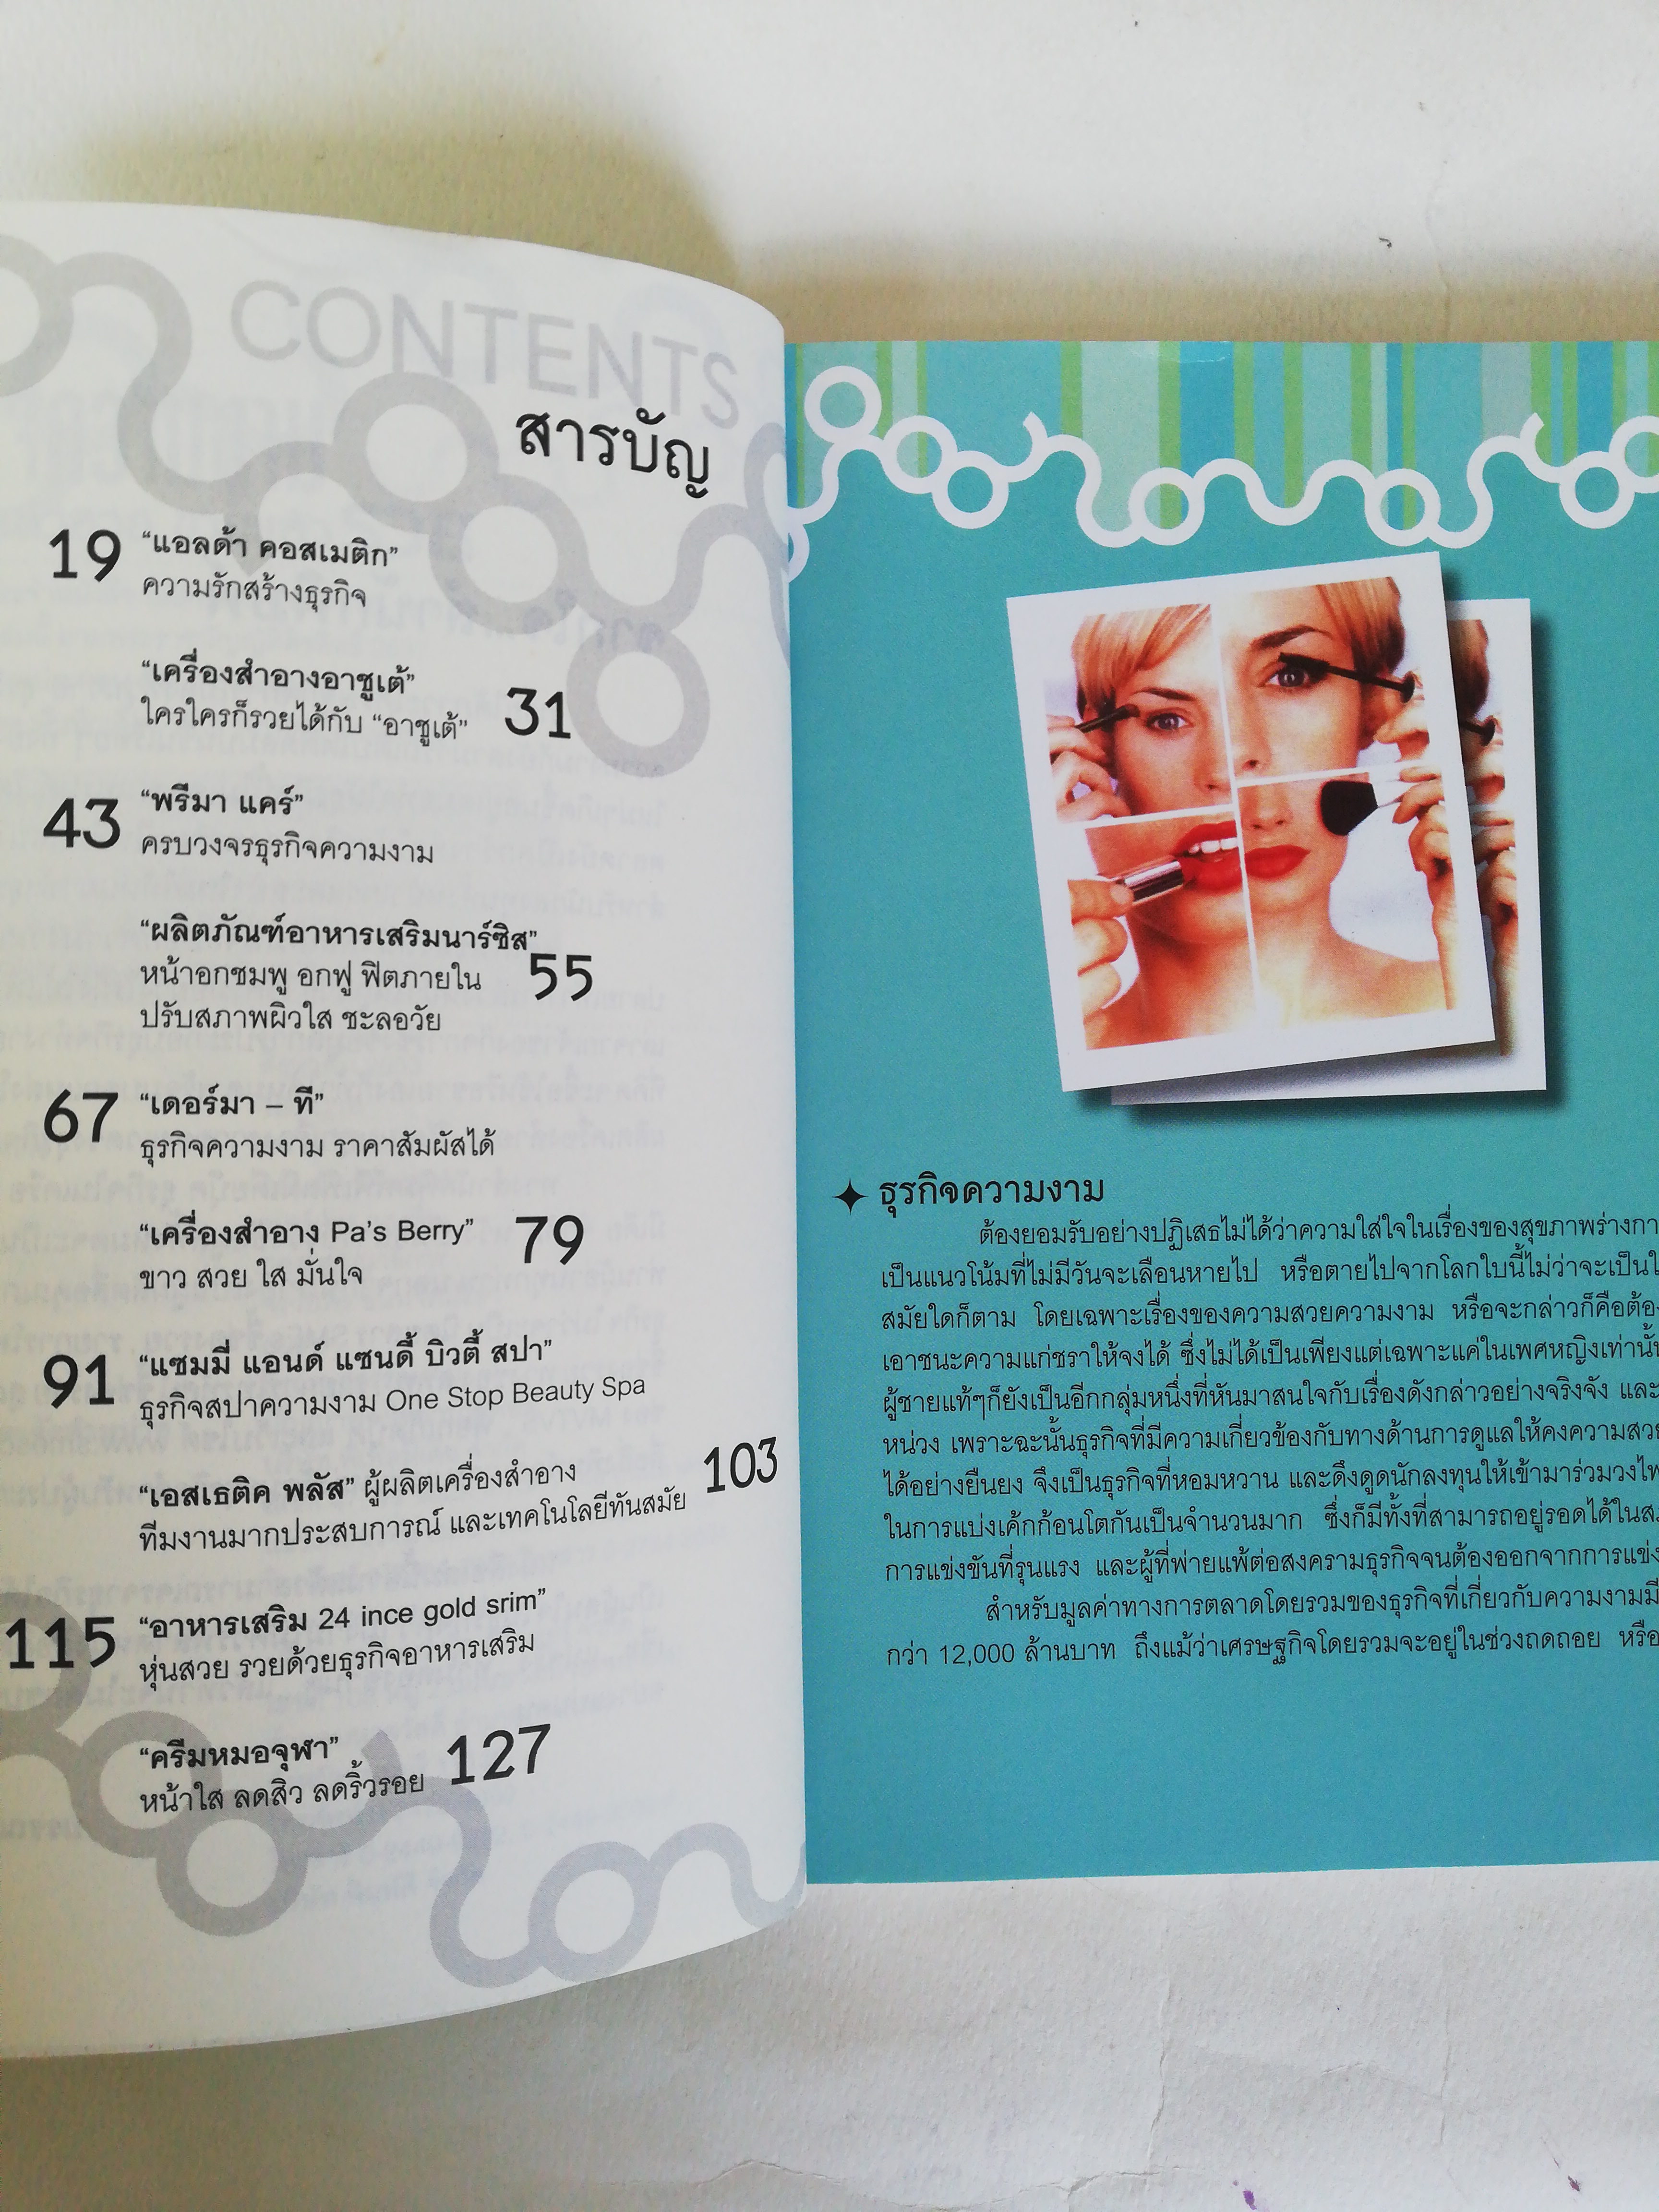 CONTENTS
สารบัญ
19 “แอลด้า คอสเมติก”
ความรักสร้างธุรกิจ
“เครื่องสำอางอาชูเต้”
ใครใครก็รวยได้กับ “อาชูเต้” 31
43 “พรีมา แคร์”
ครบวงจรธุรกิจความงาม
“ผลิตภัณฑ์อาหารเสริมนาร์ซิส”
หน้าอกชมพู อกฟู ฟิตภายใน 55
ปรับสภาพผิวใส ชะลอวัย
67 “เดอร์มา – ที”
ธุรกิจความงาม ราคาสัมผัสได้
“เครื่องสำอาง Pa's Berry” 79
ขาว สวย ใส มั่นใจ
91 “แซมมี่ แอนด์ แซนดี้ บิวตี้ สปา”
ธุรกิจสปาความงาม One Stop Beauty Spa
“เอสเธติค พลัส” ผู้ผลิตเครื่องสำอาง 103
ทีมงานมากประสบการณ์ และเทคโนโลยีทันสมัย
115 “อาหารเสริม 24 ince gold srim”
หุ่นสวย รวยด้วยธุรกิจอาหารเสริม
“ครีมหมอจุฬา” 127
หน้าใส ลดสิว ลดริ้วรอย
ธุรกิจความงาม
ต้องยอมรับอย่างปฏิเสธไม่ได้ว่าความใส่ใจในเรื่องของสุขภาพร่างกา
เป็นแนวโน้มที่ไม่มีวันจะเลือนหายไป หรือตายไปจากโลกใบนี้ไม่ว่าจะเป็น
สมัยใดก็ตาม โดยเฉพาะเรื่องของความสวยความงาม หรือจะกล่าวก็คือต้อง
เอาชนะความแก่ชราให้จงได้ ซึ่งไม่ได้เป็นเพียงแต่เฉพาะแค่ในเพศหญิงเท่านั้น
ผู้ชายแท้ๆก็ยังเป็นอีกกลุ่มหนึ่งที่หันมาสนใจกับเรื่องดังกล่าวอย่างจริงจัง และ
หน่วง เพราะฉะนั้นธุรกิจที่มีความเกี่ยวข้องกับทางด้านการดูแลให้คงความสวย
ได้อย่างยืนยง จึงเป็นธุรกิจที่หอมหวาน และดึงดูดนักลงทุนให้เข้ามาร่วมวงไพ
ในการแบ่งเค้กก้อนโตกันเป็นจำนวนมาก ซึ่งก็มีทั้งที่สามารถอยู่รอดได้ใน
การแข่งขันที่รุนแรง และผู้ที่พ่ายแพ้ต่อสงครามธุรกิจจนต้องออกจากการแข่ง
สำหรับมูลค่าทางการตลาดโดยรวมของธุรกิจที่เกี่ยวกับความงามมี
กว่า 12,000 ล้านบาท ถึงแม้ว่าเศรษฐกิจโดยรวมจะอยู่ในช่วงถดถอย หรือ